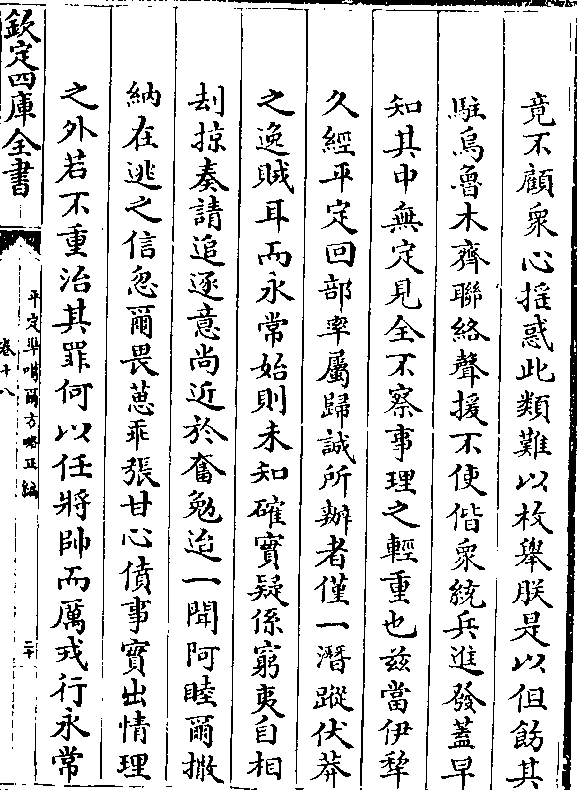 竟不顧衆心揺惑此類難以枚舉朕是以但飭其
駐烏魯木齊聯絡聲援不使偕衆統兵進發蓋早
知其中無定見全不察事理之輕重也兹當伊犂
久經平定回部率屬歸誠所辦者僅一潛蹤伏莽
之逸賊耳而永常始則未知確實疑係窮夷自相
刦掠奏請追逐意尚近於奮勉迨一聞阿睦爾撒
納在逃之信忽爾畏葸乖張甘心僨事實出情理
之外若不重治其罪何以任將帥而厲戎行永常
欽定四庫全書
平定凖噶爾方略正編
卷十八
二十